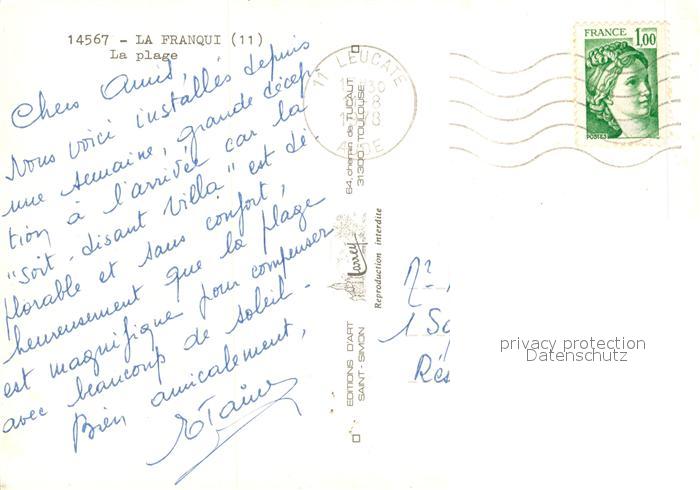 14567 - LA FRANQUI (11)
La plage
Chers Amis,
Nous voici installés depuis
une semaine, grande décep-
tion à l'arrivée car la
"Soit-disant Villa" est dé-
plorable et sans confort,
heureusement que la plage
est magnifique pour compenser
avec beaucoup de soleil -
Bien amicalement,
11 LEUCATE
AUDE
64, chemin de TUCAUT
31300 TOULOUSE
Larrey
Reproduction interdite
EDITIONS D'ART
SAINT-SIMON
FRANCE
1,00
POSTES
privacy protection
Datenschutz